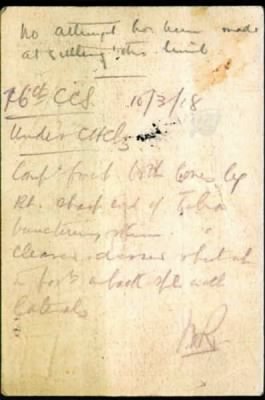 No attempt has been made
at setting this limb
46th CCS 10/3/18
Under CHCl3
Compd fract both bones leg
Rt. sharp end of Tibia
puncturing skin.
cleaned dressed & put up
in posn a back spl. with
laterals